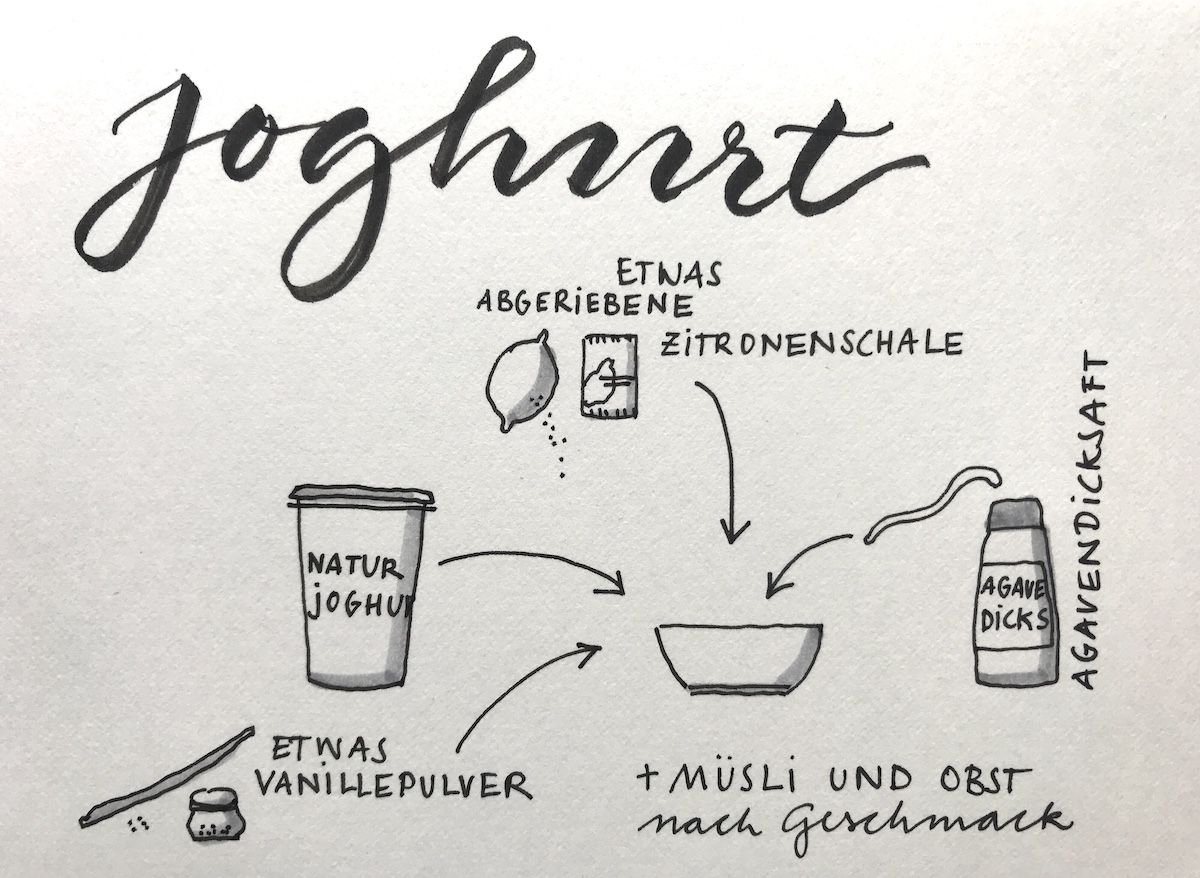 Joghurt
ETWAS
ABGERIEBENE
ZITRONENSCHALE
AGAVENDICKSAFT
NATUR
JOGHU
AGAVE
DICKS
ETWAS
VANILLEPULVER
+ MÜSLI UND OBST
nach Geschmack